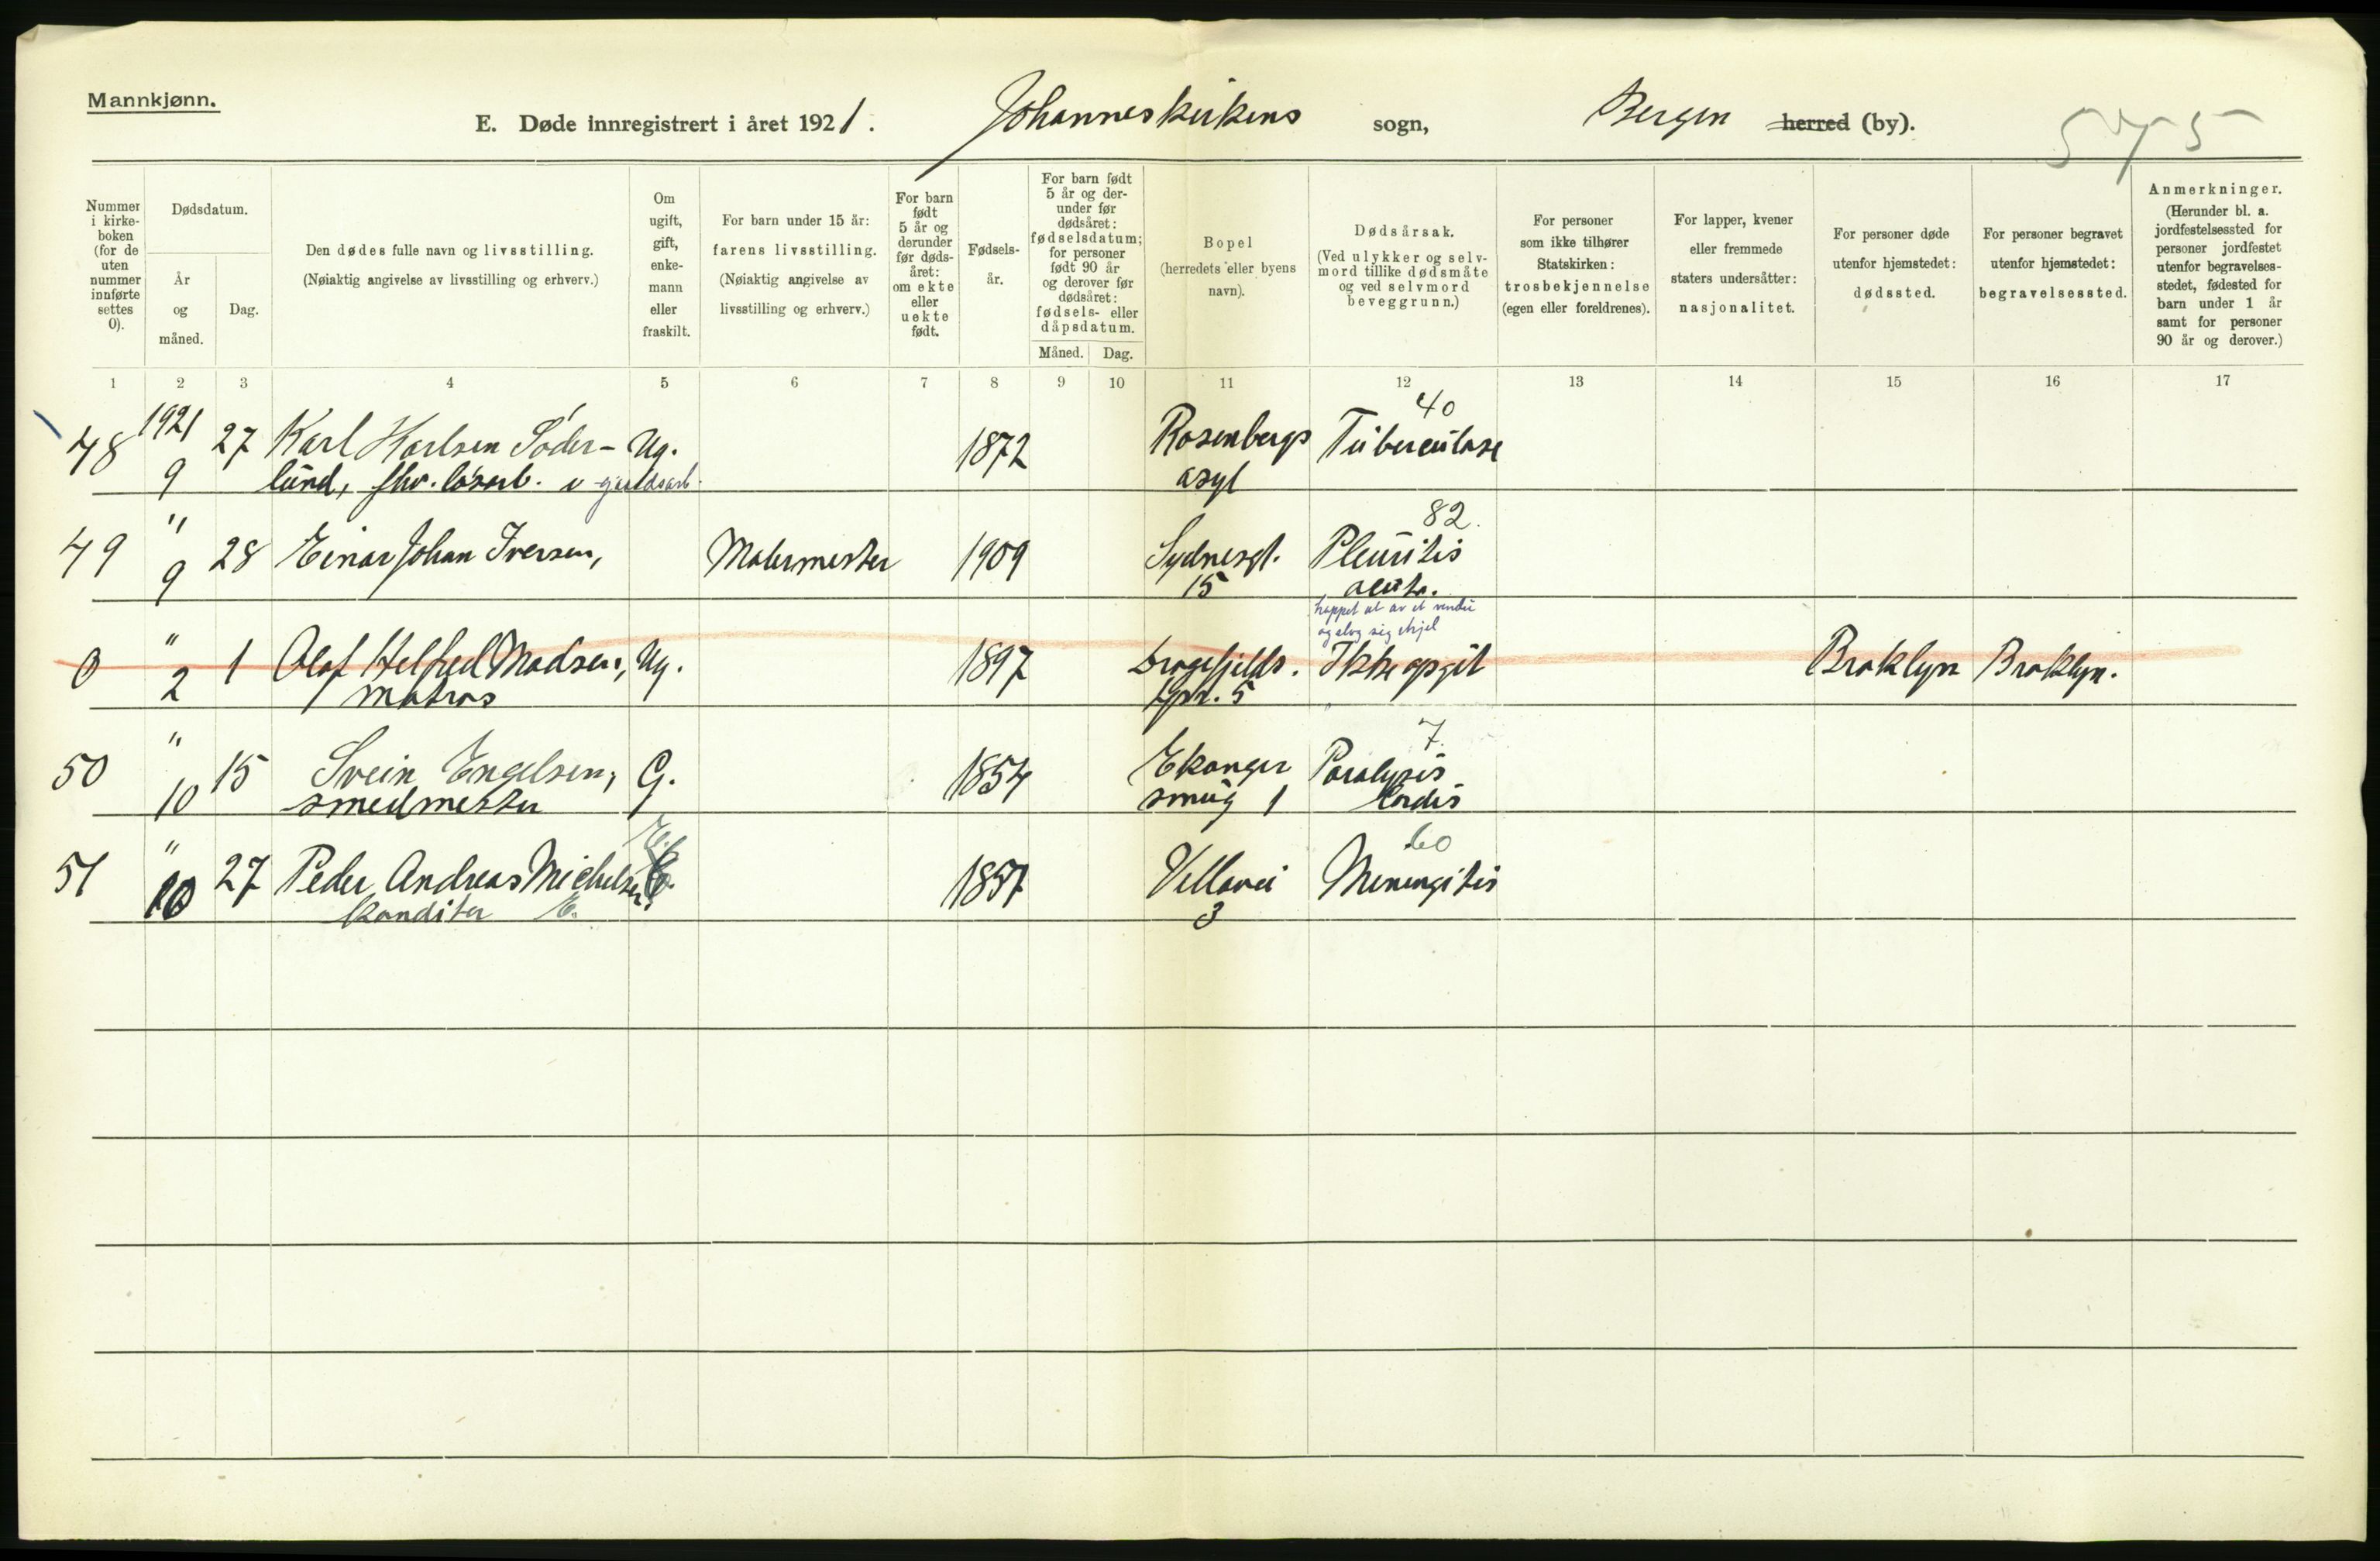 Mannkjønn.
E. Døde innregistrert i året 1921. Johanneskirkens sogn, Bergen herred (by).
575
Nummer i kirke-boken (for de uten nummer innførte settes 0).
Dødsdatum.
År og måned.
Dag.
Den dødes fulle navn og livsstilling.
(Nøiaktig angivelse av livsstilling og erhverv.)
Om ugift, gift, enke-mann eller fraskilt.
For barn under 15 år: farens livsstilling.
(Nøiaktig angivelse av livsstilling og erhverv.)
For barn født 5 år og derunder før døds-året: om ekte eller uekte født.
Fødsels-år.
For barn født 5 år og der-under før dødsåret: fødselsdatum; for personer født 90 år og derover før dødsåret: fødsels- eller dåpsdatum.
Måned. Dag.
Bopel
(herredets eller byens navn).
Dødsårsak.
(Ved ulykker og selv-mord tillike dødsmåte og ved selvmord beveggrunn.)
For personer som ikke tilhører Statskirken: trosbekjennelse (egen eller foreldrenes).
For lapper, kvener eller fremmede staters undersåtter: nasjonalitet.
For personer døde utenfor hjemstedet: dødssted.
For personer begravet utenfor hjemstedet: begravelsessted.
Anmerkninger.
(Herunder bl. a. jordfestelsessted for personer jordfestet utenfor begravelses-stedet, fødested for barn under 1 år samt for personer 90 år og derover.)
1 2 3 4 5 6 7 8 9 10 11 12 13 14 15 16 17
1921 40
48 9 27 Karl Karlsen Söder- Ug. 1872 Rosenbergs Tuberculose
lund, fhv. løsarb. gaardsarb. asyl
" 82.
49 9 28 Einar Johan Iversen, Malermester 1909 Sydnesgt. Pleuritis
15 acuta.
hoppet ut av et vindu
og slog sig ihjel
0 " 2 1 Olaf Helfred Madsen, Ug. 1897 Dragefjelds. Ikke opgit Broklyn Broklyn.
Matros 5
" 7.
50 10 15 Svein Engelsen, G. 1854 Ekanger Paralysis
smedmester smug 1 cordis
" E. 60
51 10 27 Peder Andreas Michelsen, 1857 Villavei Meningitis
Konditor E. 3